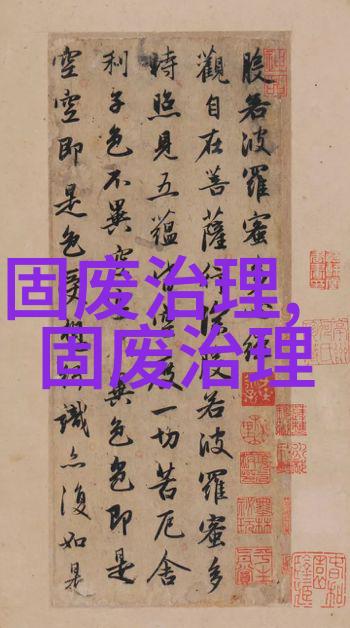 般若波羅蜜經
觀自在菩薩行深般若波羅蜜多
時照見五蘊皆空度一切苦厄舍
利子色不異空異色色即是
空空即是色受想行識亦復如是
固废治理,
固废治理